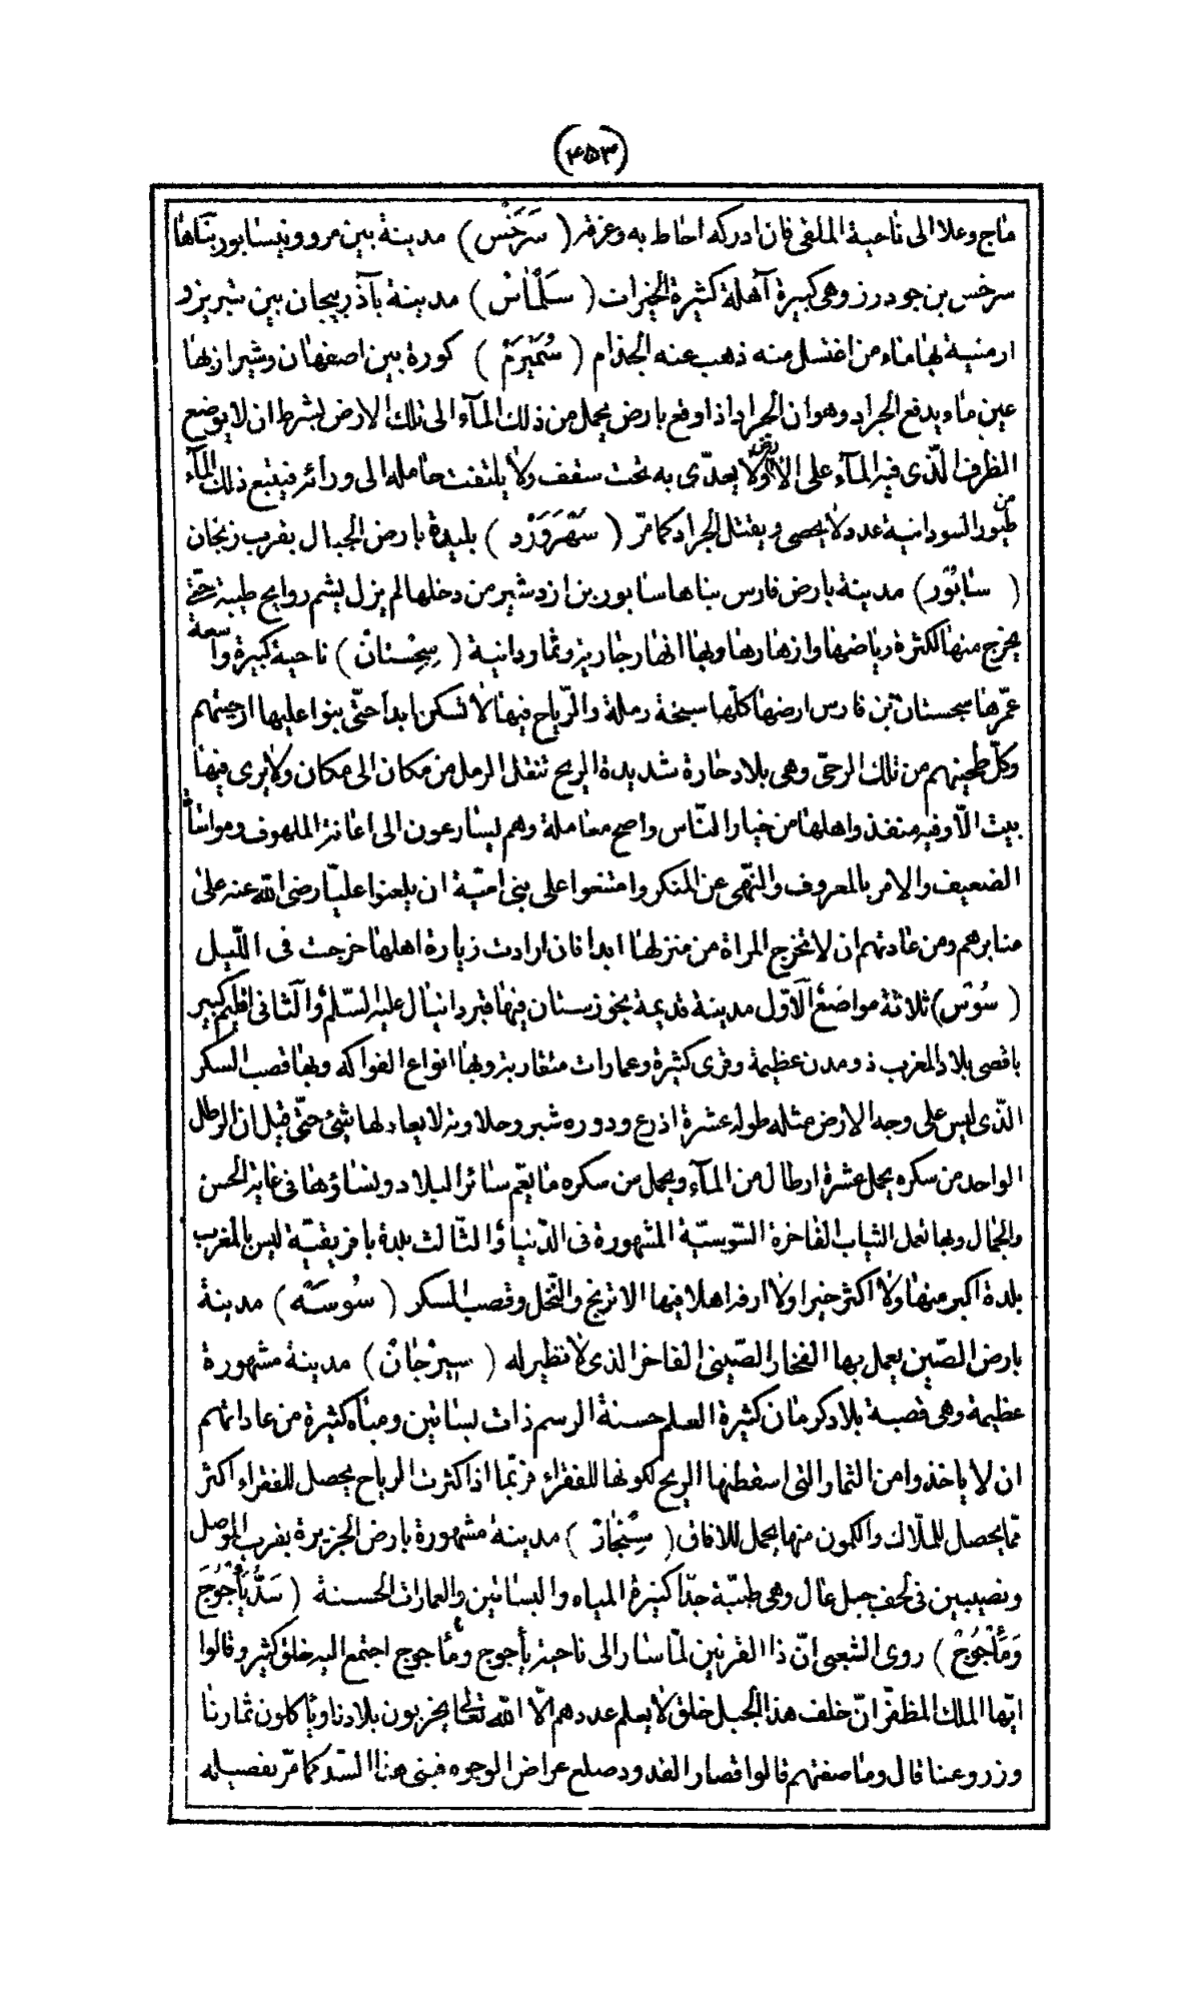 (٤٥٣)
ماج وعلا الى ناحية الملقى فان ادركه احاط به وغرقه ( سَرَخْس ) مدينة بين مرو ونيسابور بناها
سرخس بن جودرز وهى كبيرة آهلة كثيرة الخيرات ( سَلْمٰاسْ ) مدينة بآذربيجان بين تبريز و
ارمنية بها ماء من اغتسل منه ذهب عنه الجذام ( سُمَيْرَمْ ) كورة بين اصفهان وشيراز بها
عين ماء يدفع الجراد وهو ان الجراد اذا وقع بارض يحمل من ذلك المآء الى تلك الارض بشرط ان لا يوضع
الظرف الّذى فيه المآء على الارض ولا يعدّى به تحت سقف ولا يلتفت حامله الى ورائه فيتبع ذلك المآء
من طيور السودانية عدد لا يحصى ويقتل الجراد كما مرّ ( سَهْرَوَرْد ) بليدة بارض الجبال بقرب زنجان
( سٰابُوْر ) مدينة بارض فارس بناها سابور بن اردشير من دخلها لم يزل يشم روايح طيبة حتّى
يخرج منها لكثرة رياضها وازهارها وبها انهار جارية وثمار دانية ( سِجِسْتانْ ) ناحية كبيرة واسعة
عمّرها سجستان بن فارس ارضها كلّها سبخة رملة والرّياح فيها لا تسكن ابدا حتّى بنوا عليها ارحيتهم
وكلّ طحينهم من تلك الرحىّ وهى بلاد حارة شديدة الريح تنقل الرمل من مكان الى مكان ولا يرى فيها
بيت الّا وفيه منفذ واهلها من خيار النّاس واصح معاملة وهم يسارعون الى اغاثة الملهوف ومواساة
الضعيف والامر بالمعروف والنّهى عن المنكر وامتنعوا على بنى اميّة ان يلعنوا عليّا رضى الله عنه على
منابرهم ومن عادتهم ان لا تخرج المراة من منزلها ابدا فان ارادت زيارة اهلها خرجت فى اللّيل
( سُوْس ) ثلاثة مواضع الاوّل مدينة قديمة بخوزستان فيها قبر دانيال عليه السّلم والثانى اقليم كبير
باقصى بلاد المغرب ذو مدن عظيمة وقرى كثيرة وعمارات متقاربة وبها انواع الفواكه وبها قصب السكر
الّذى ليس على وجه الارض مثله طوله عشرة اذرع ودوره شبر وحلاوته لا يعادلها شئ حتّى قيل ان الرطل
الواحد من سكره يحمل عشرة ارطال من المآء ويحمل من سكره ما يعّم سائر البلاد ونساؤها فى غاية الحسن
والجمال وبها تعمل الثياب الفاخرة السّوسيّة المشهورة فى الدّنيا والثّالث بلدة بافريقيّة ليس بالمغرب
بلدة اكبر منها ولا اكثر خيرا ولا ارفه اهلا فيها الاترنج والنّخل وقصب السكر ( سُوسَه ) مدينة
بارض الصّين يعمل بها الفخار الصّينى الفاخر الذى لا نظير له ( سِيرْجٰانْ ) مدينة مشهورة
عظيمة وهى قصبة بلاد كرمان كثيرة العلم حسنة الرسم ذات بساتين ومياه كثيرة من عاداتهم
ان لا ياخذوا من الثمار التى اسقطتها الريح لكونها للفقراء فربّما اذا كثرت الرياح يحصل للفقراء اكثر
ممّا يحصل للملّاك والكمون منها يحمل للافاق ( سِنْجٰارْ ) مدينة مشهورة بارض الجزيرة بقرب الموصل
ونصيبين فى لحف جبل عال وهى طيّبة جدّا كثيرة المياه والبساتين والعمارات الحسنة ( سَدُّ يَأْجُوْجَ
وَمَأْجُوْجْ ) روى الشعبى انّ ذا القرنين لمّا سار الى ناحية يأجوج ومأجوج اجتمع اليه خلق كثير وقالوا
ايّها الملك المظفّر انّ خلف هذا الجبل خلق لا يعلم عددهم الّا الله تعالى يخربون بلادنا ويأكلون ثمارنا
وزروعنا قال وما صفتهم قالوا قصار القدود صلع عراض الوجوه فبنى هذا السّد كما مرّ تفصيله